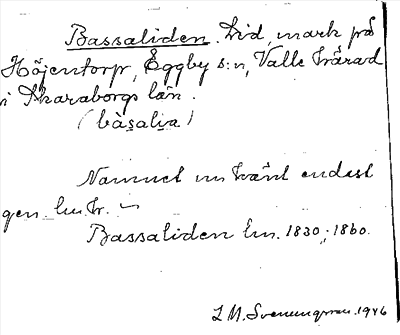 Bassaliden. Lid, mark på
Höjentorp, Eggby s:n, Valle härad
i Skaraborgs län.
(bàsalia)
Namnet nu känt endast
gen. lm.k. —
Bassaliden lm. 1830; 1860.
L M. Svenungsson. 1946